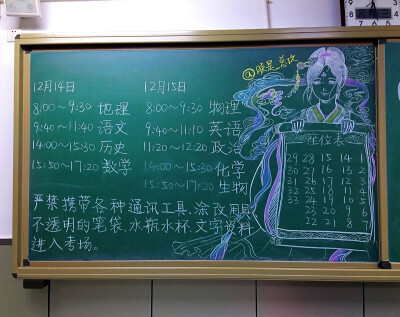 12月14日 12月15日
8:00~9:30 地理 8:00~9:30 物理
9:40~11:40 语文 9:40~11:10 英语
14:00~15:30 历史 11:20~12:20 政治
15:50~17:20 数学 14:00~15:30 化学
15:50~17:20 生物
严禁携带各种通讯工具、涂改用品、
不透明的笔袋、水瓶水杯、文字资料
进入考场。
座位表
29 28 15 14 1
30 27 16 13 2
31 26 17 12 3
32 25 18 11 4
33 24 19 10 5
23 20 9 6
22 21 8 7